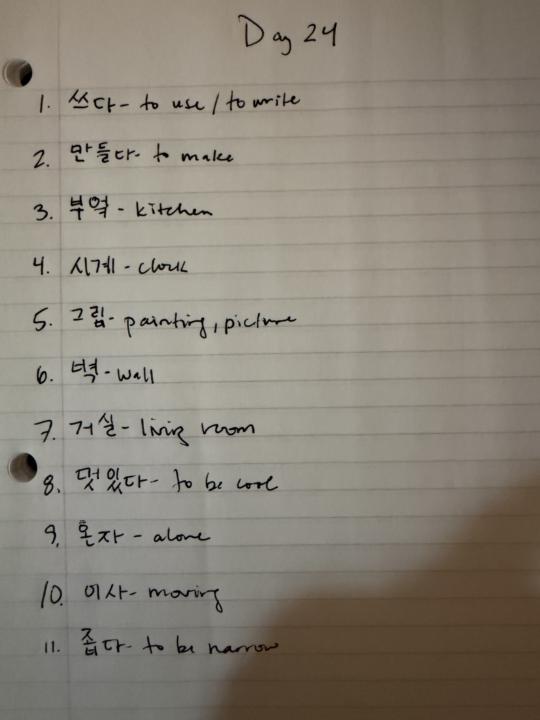 Day 24
1. 쓰다 - to use / to write
2. 만들다 - to make
3. 부엌 - kitchen
4. 시계 - clock
5. 그림 - painting, picture
6. 벽 - wall
7. 거실 - living room
8. 멋있다 - to be cool
9. 혼자 - alone
10. 이사 - moving
11. 좁다 - to be narrow